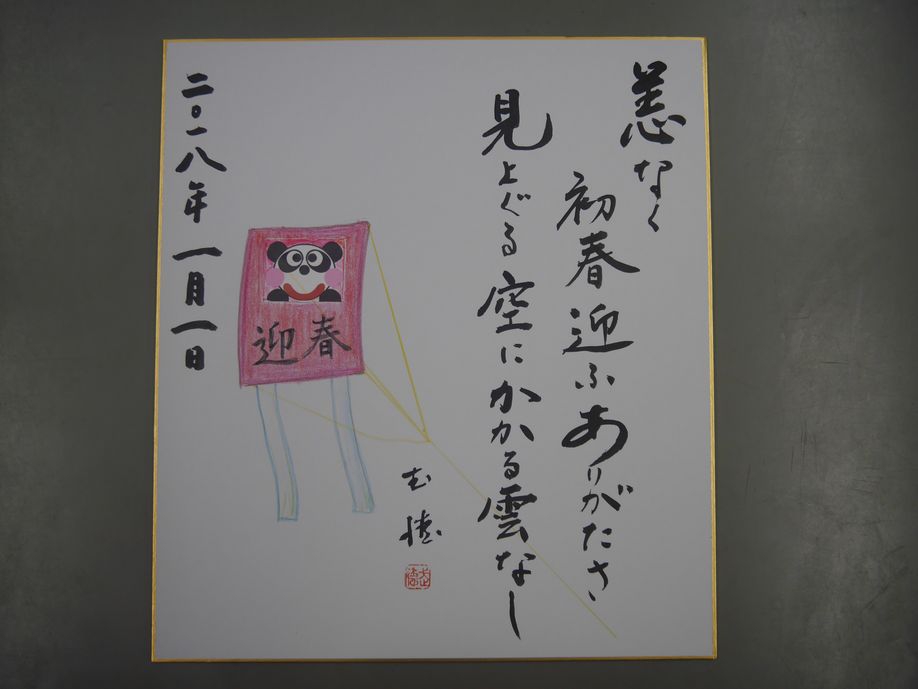 恙なく
初春迎ふありがたさ
見上ぐる空にかかる雲なし
迎春
二〇一八年 一月一日